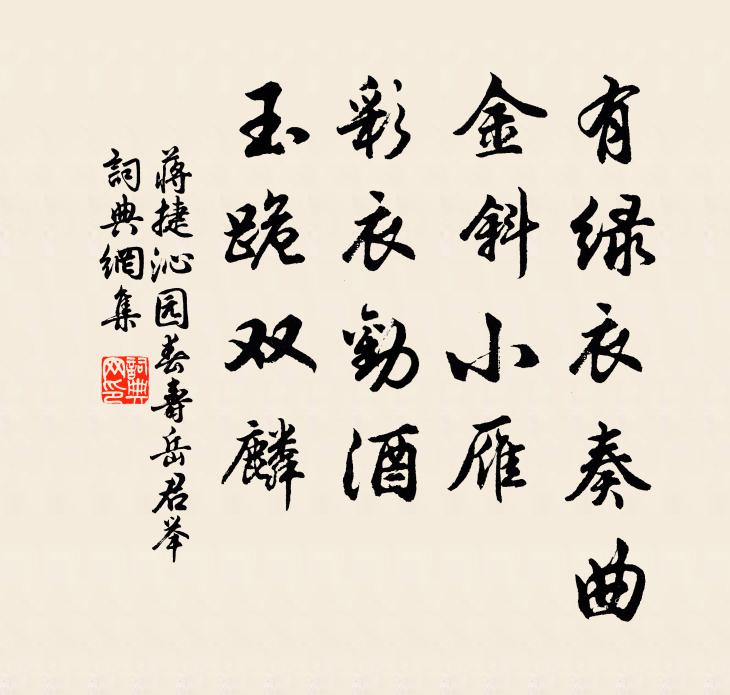 有绿衣奏曲
金斜小雁
彩衣劝酒
玉跪双麟
蒋捷沁园春寿岳君举
詞典網集
詞典网印